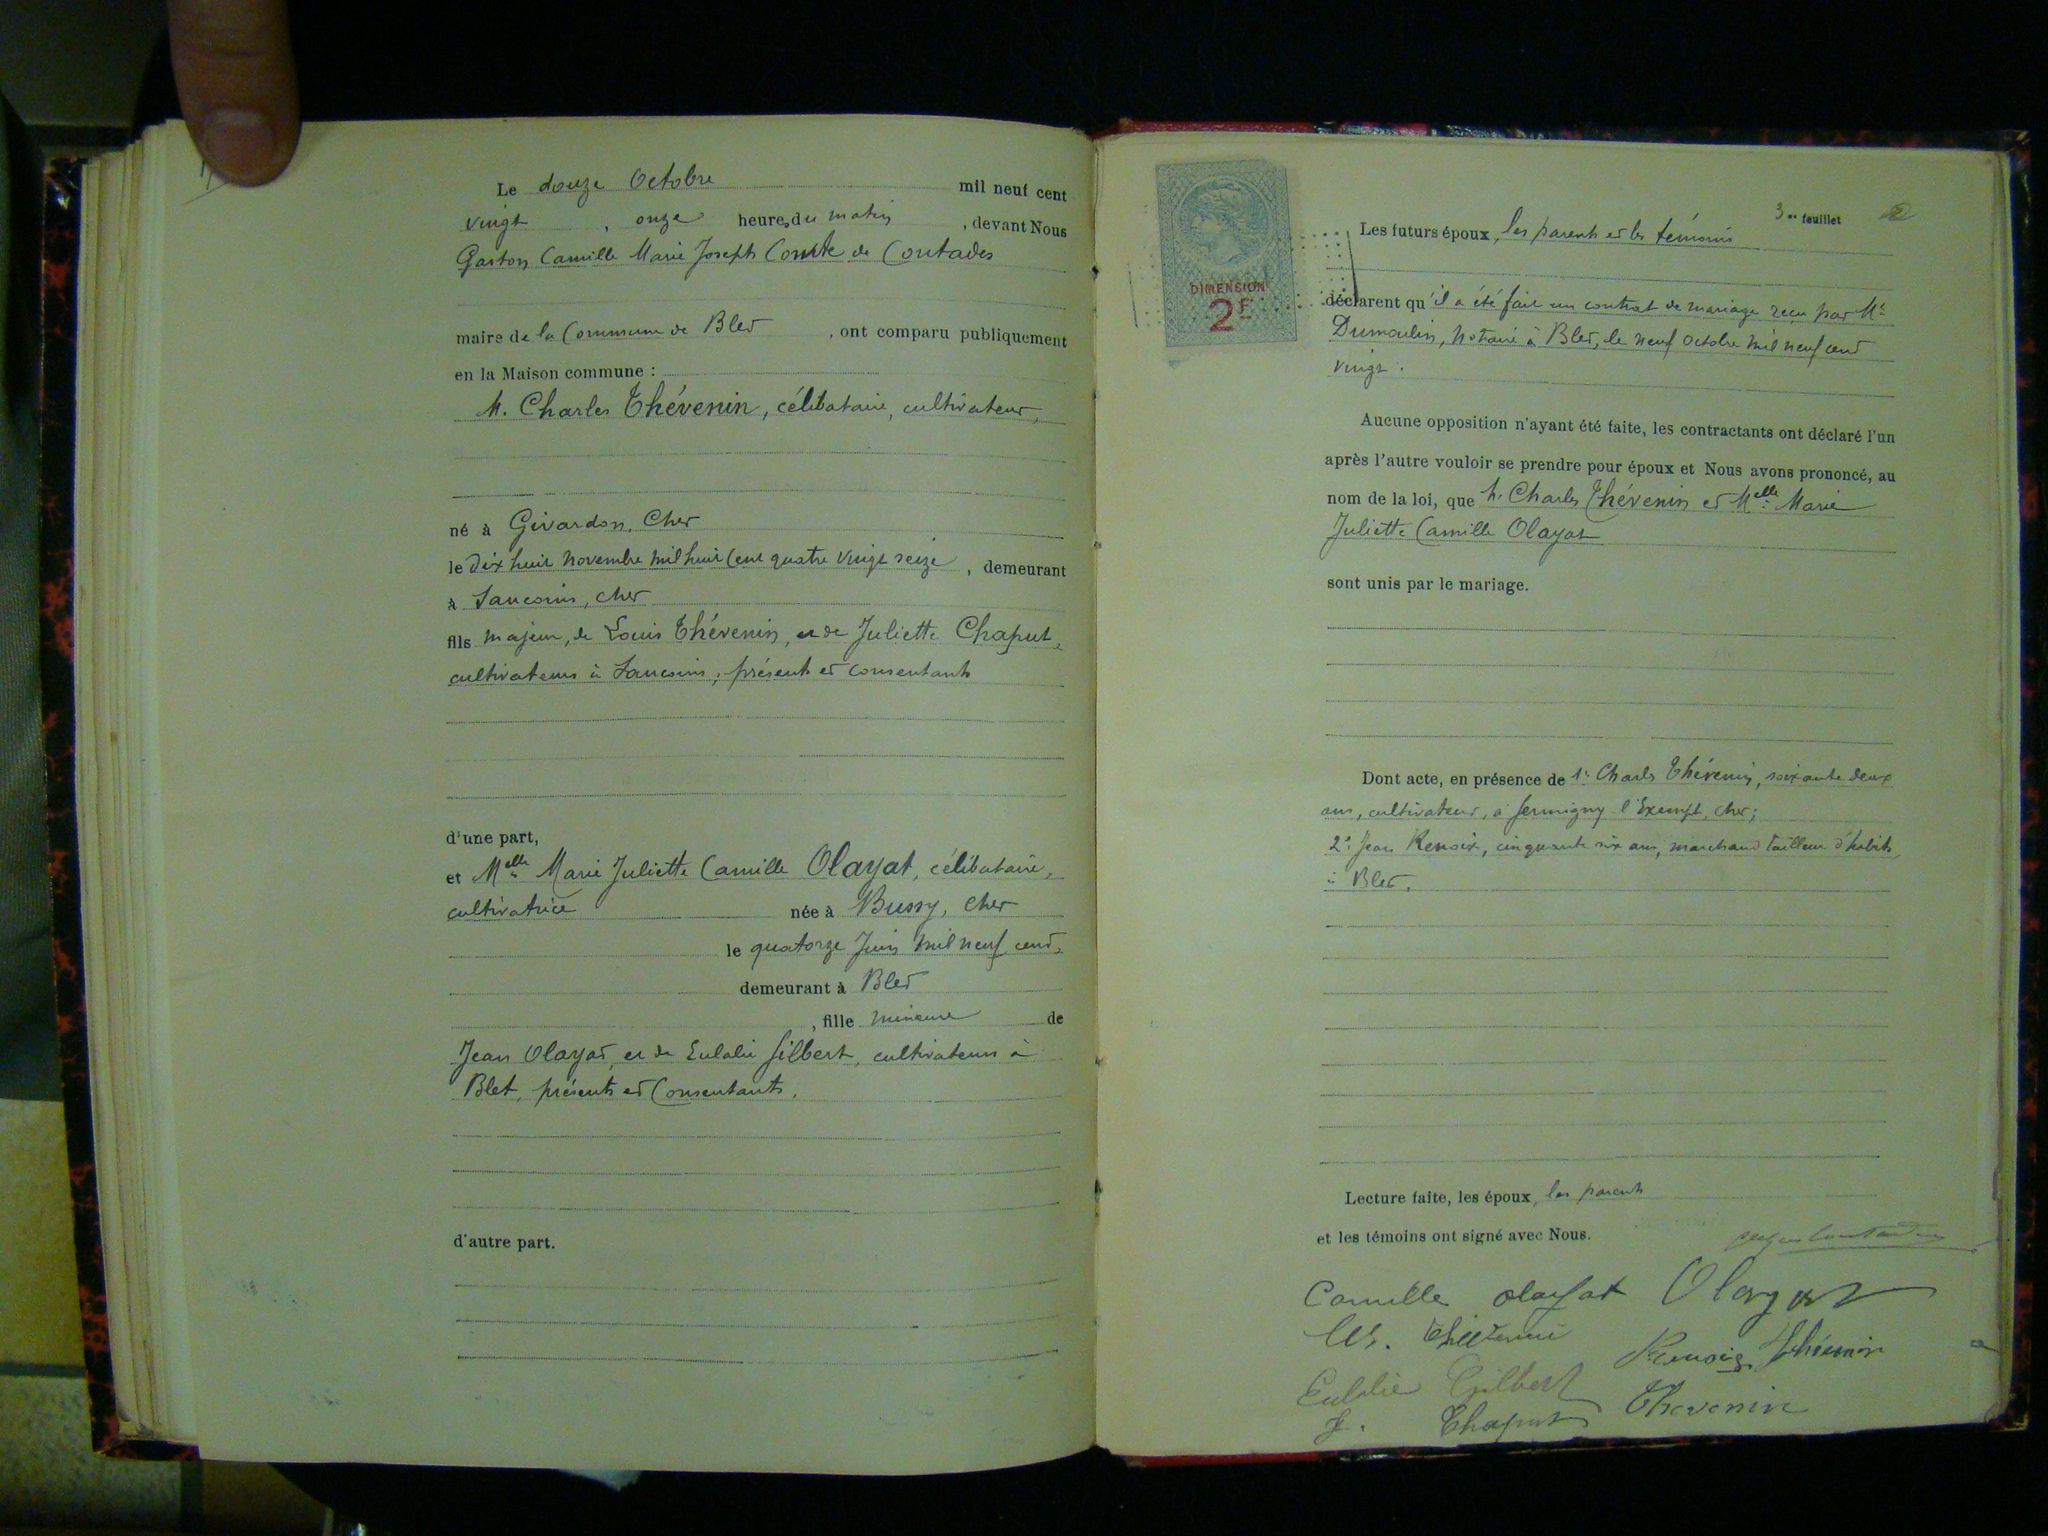 Le douze Octobre mil neuf cent
vingt, onze heures du matin, devant Nous
Gaston Camille Marie Joseph Comte de Contades
maire de la Commune de Blet, ont comparu publiquement
en la Maison commune :
M. Charles Thévenin, célibataire, cultivateur,
né à Givardon, Cher
le dix huit novembre mil huit cent quatre vingt seize, demeurant
à Sancoins, Cher
fils majeur, de Louis Thévenin, et de Juliette Chaput,
cultivateurs à Sancoins, présents et consentants
d'une part,
et Melle Marie Juliette Camille Olayat, célibataire,
cultivatrice née à Bussy, Cher
le quatorze Juin mil neuf cent,
demeurant à Blet
, fille mineure de
Jean Olayat, et de Eulalie Gilbert, cultivateurs à
Blet, présents et Consentants.
d'autre part.
DIMENSION
2F
3me feuillet
Les futurs époux, les parents et les témoins
déclarent qu'il a été fait un contrat de mariage reçu par Me
Dumoulin, notaire à Blet, le neuf octobre mil neuf cent
vingt.
Aucune opposition n'ayant été faite, les contractants ont déclaré l'un
après l'autre vouloir se prendre pour époux et Nous avons prononcé, au
nom de la loi, que M. Charles Thévenin et Melle Marie
Juliette Camille Olayat
sont unis par le mariage.
Dont acte, en présence de 1° Charles Thévenin, soixante deux
ans, cultivateur, à Germigny l'Exempt, Cher;
2° Jean Renoix, cinquante six ans, marchand tailleur d'habits,
à Blet.
Lecture faite, les époux, les parents
et les témoins ont signé avec Nous.
Camille Olayat Olayat
Ch. Thévenin
Renoix Thévenin
Eulalie Gilbert
Thevenin
J. Chaput